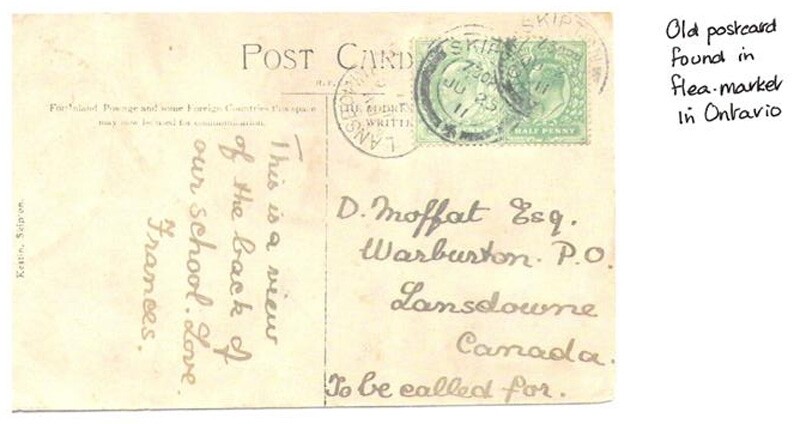 POST CARD
For Inland Postage and some Foreign Countries this space
may now be used for communication.
THE ADDRESS
WRITTE
SKIPTON
JU 23
11
SKIP
11
HALF PENNY
LANSDOWNE
This is a view
of the back of
our school. Love
Frances.
D. Moffat Esq.
Warburton. P.O.
Lansdowne
Canada.
To be called for.
Kestin, Skipton.
Old postcard
found in
flea-market
in Ontario